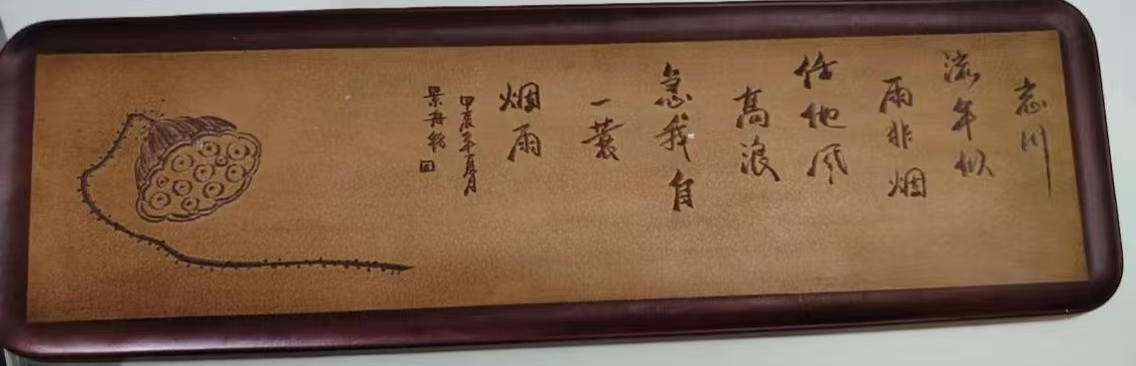 志川
流年似
雨非烟
任他风
高浪
急我自
一蓑
烟雨
甲辰年夏月
景舟